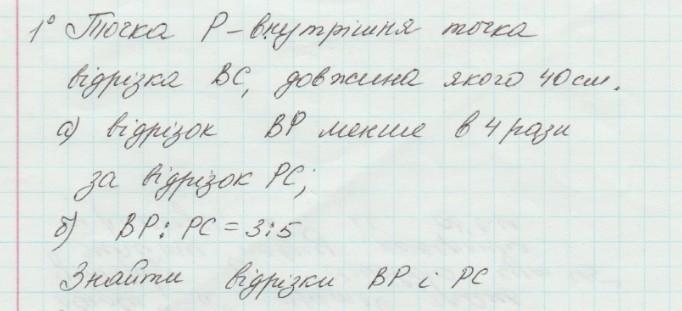 1° Точка P – внутрішня точка
відрізка BC, довжина якого 40 см.
а) відрізок BP менше в 4 рази
за відрізок PC;
б) BP : PC = 3 : 5
Знайти відрізки BP і PC